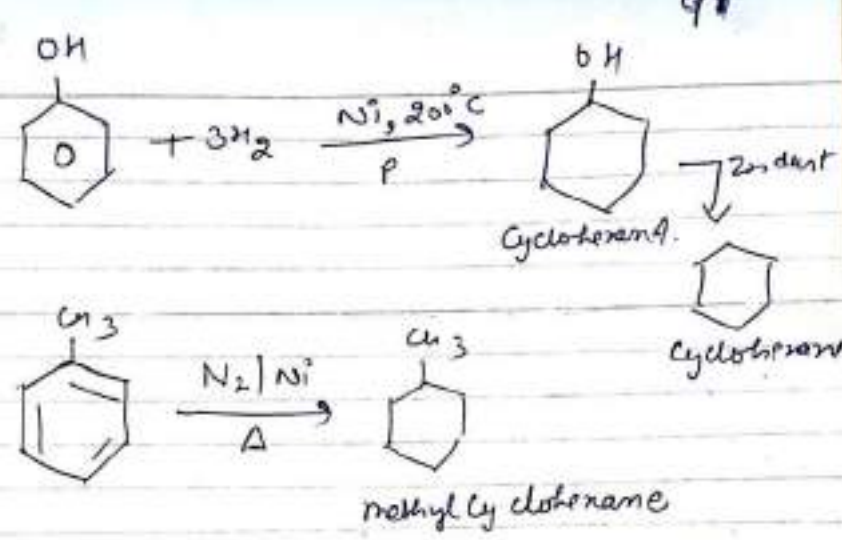 OH
+ 3H2
Ni, 200°C
P
OH
Zn dust
Cyclohexanol.
Cyclohexan
CH3
N2 | Ni
Δ
CH3
methyl Cy clohexane